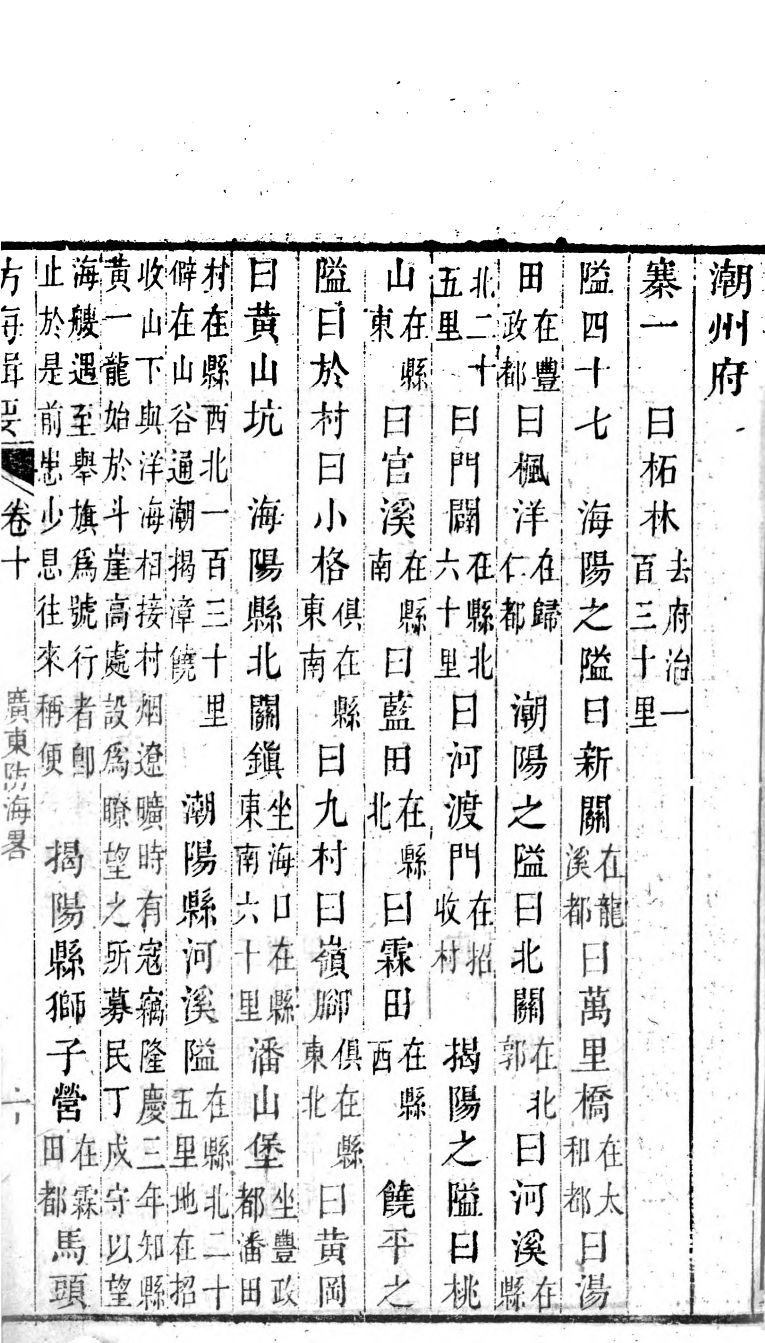 潮州府
寨一　曰柘林去府治一百三十里
隘四十七　海陽之隘曰新關在龍溪都曰萬里橋在太和都曰湯
田在豐政都曰楓洋在歸仁都　潮陽之隘曰北關在北郭曰河溪在縣
北二十五里曰門闢在縣北六十里曰河渡門在招收村　揭陽之隘曰桃
山在縣東曰官溪在縣南曰藍田在縣北曰霖田在縣西　饒平之
隘曰於村曰小格俱在縣東南曰九村曰嶺腳俱在縣東北曰黃岡
曰黃山坑　海陽縣北關鎮坐海口在縣東南六十里潘山堡坐豐政都潘田
村在縣西北一百三十里僻在山谷通潮揭漳饒　潮陽縣河溪隘在縣北二十五里地在招
收山下與洋海相接村烟遼曠時有寇竊隆慶三年知縣黃一龍始於斗崖高處設為瞭望之所募民丁戍守以望
海艘遇至舉旗為號行者即止於是前患少息往來稱便　揭陽縣獅子營在霖田都馬頭
方海輯要　卷十　廣東防海畧